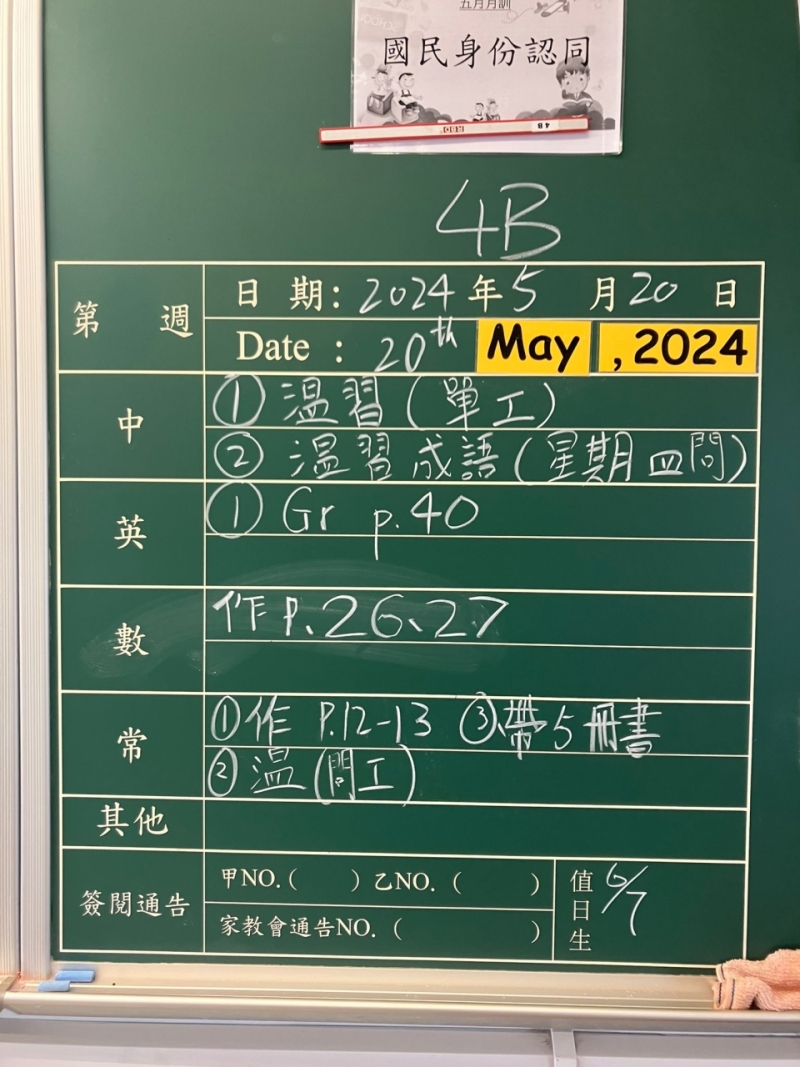 五月月訓
國民身份認同
4B
第 週
日 期：2024年5 月20 日
Date : 20th May , 2024
中
① 溫習(單工)
② 溫習成語(星期四問)
英
① Gr p.40
數
作 P.26、27
常
①作 P.12-13 ③帶5冊書
②溫(問工)
其他
簽閱通告
甲NO.( )乙NO. ( )
家教會通告NO. ( )
值日生
6/7